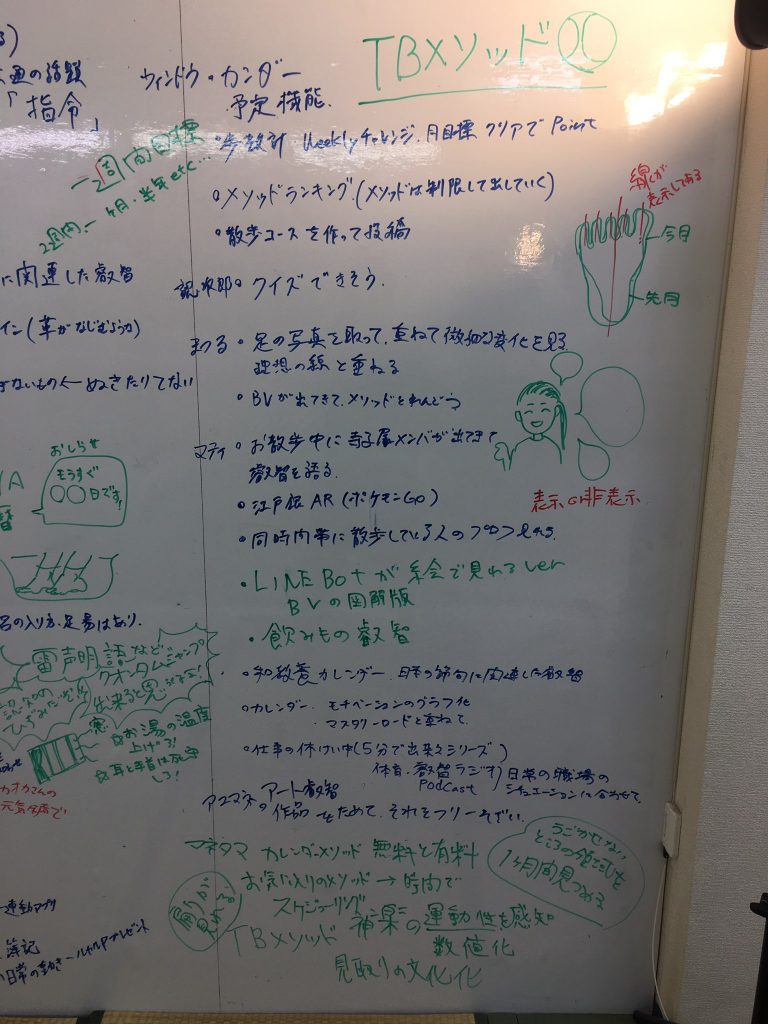 TBメソッド
画の話題
「指令」
ウィンドウ・カンダー
予定機能.
一週間目標
2週間.一ヶ月・半年etc...
・歩数計 Weeklyチャレンジ.月目標クリアでPoint
・メソッドランキング.(メソッドは制限して出していく)
・散歩コースを作って投稿
線が
表示してある
今月
先月
に関連した叡智
・クイズできそう.
イン(革がなじむようか)
まつる・足の写真を取って、重ねて微細な変化を見る
理想の線と重ねる
・BVが出てきて.メソッドとれんどう
ないもの←ぬきたりてない
マティ・お散歩中に寺子屋メンバが出てきて
叡智を語る.
・江戸銀AR(ポケモンGo)
・同時間帯に散歩している人のプロフ見れる.
表示or非表示
おしらせ
もうすぐ
○○日です!
・LINE Botが絵会で見れるver
BVの図解版
・飲みもの叡智
呂の入り方.足湯はあり.
雷声明 請など
クオンタムジャンプ
出来ると思
・和敬養カレンダー.日本の節句に関連した叡智
・カレンダー.モチベーションのグラフ化
・マスタリーロードと重ねて.
寒
☆お湯の温度
上げろ!
☆耳と手首は
しろ!
・仕事の休けい中(5分で出来るシリーズ)
体育・叡智ラジオ
Podcast
日常の職場の
シチュエーションに合わせて.
・アート叡智
作品をためて.それをフリーそざい.
マネタマ カレンダーメソッド 無料と有料
お気に入りのメソッド→時間で
スケジューリング
うごかせない
ところの
1ヶ月間見つめる
TBメソッド 神楽の運動性を感知
数値化
見取りの文化化
運動アプリ
簿記
日常の動き